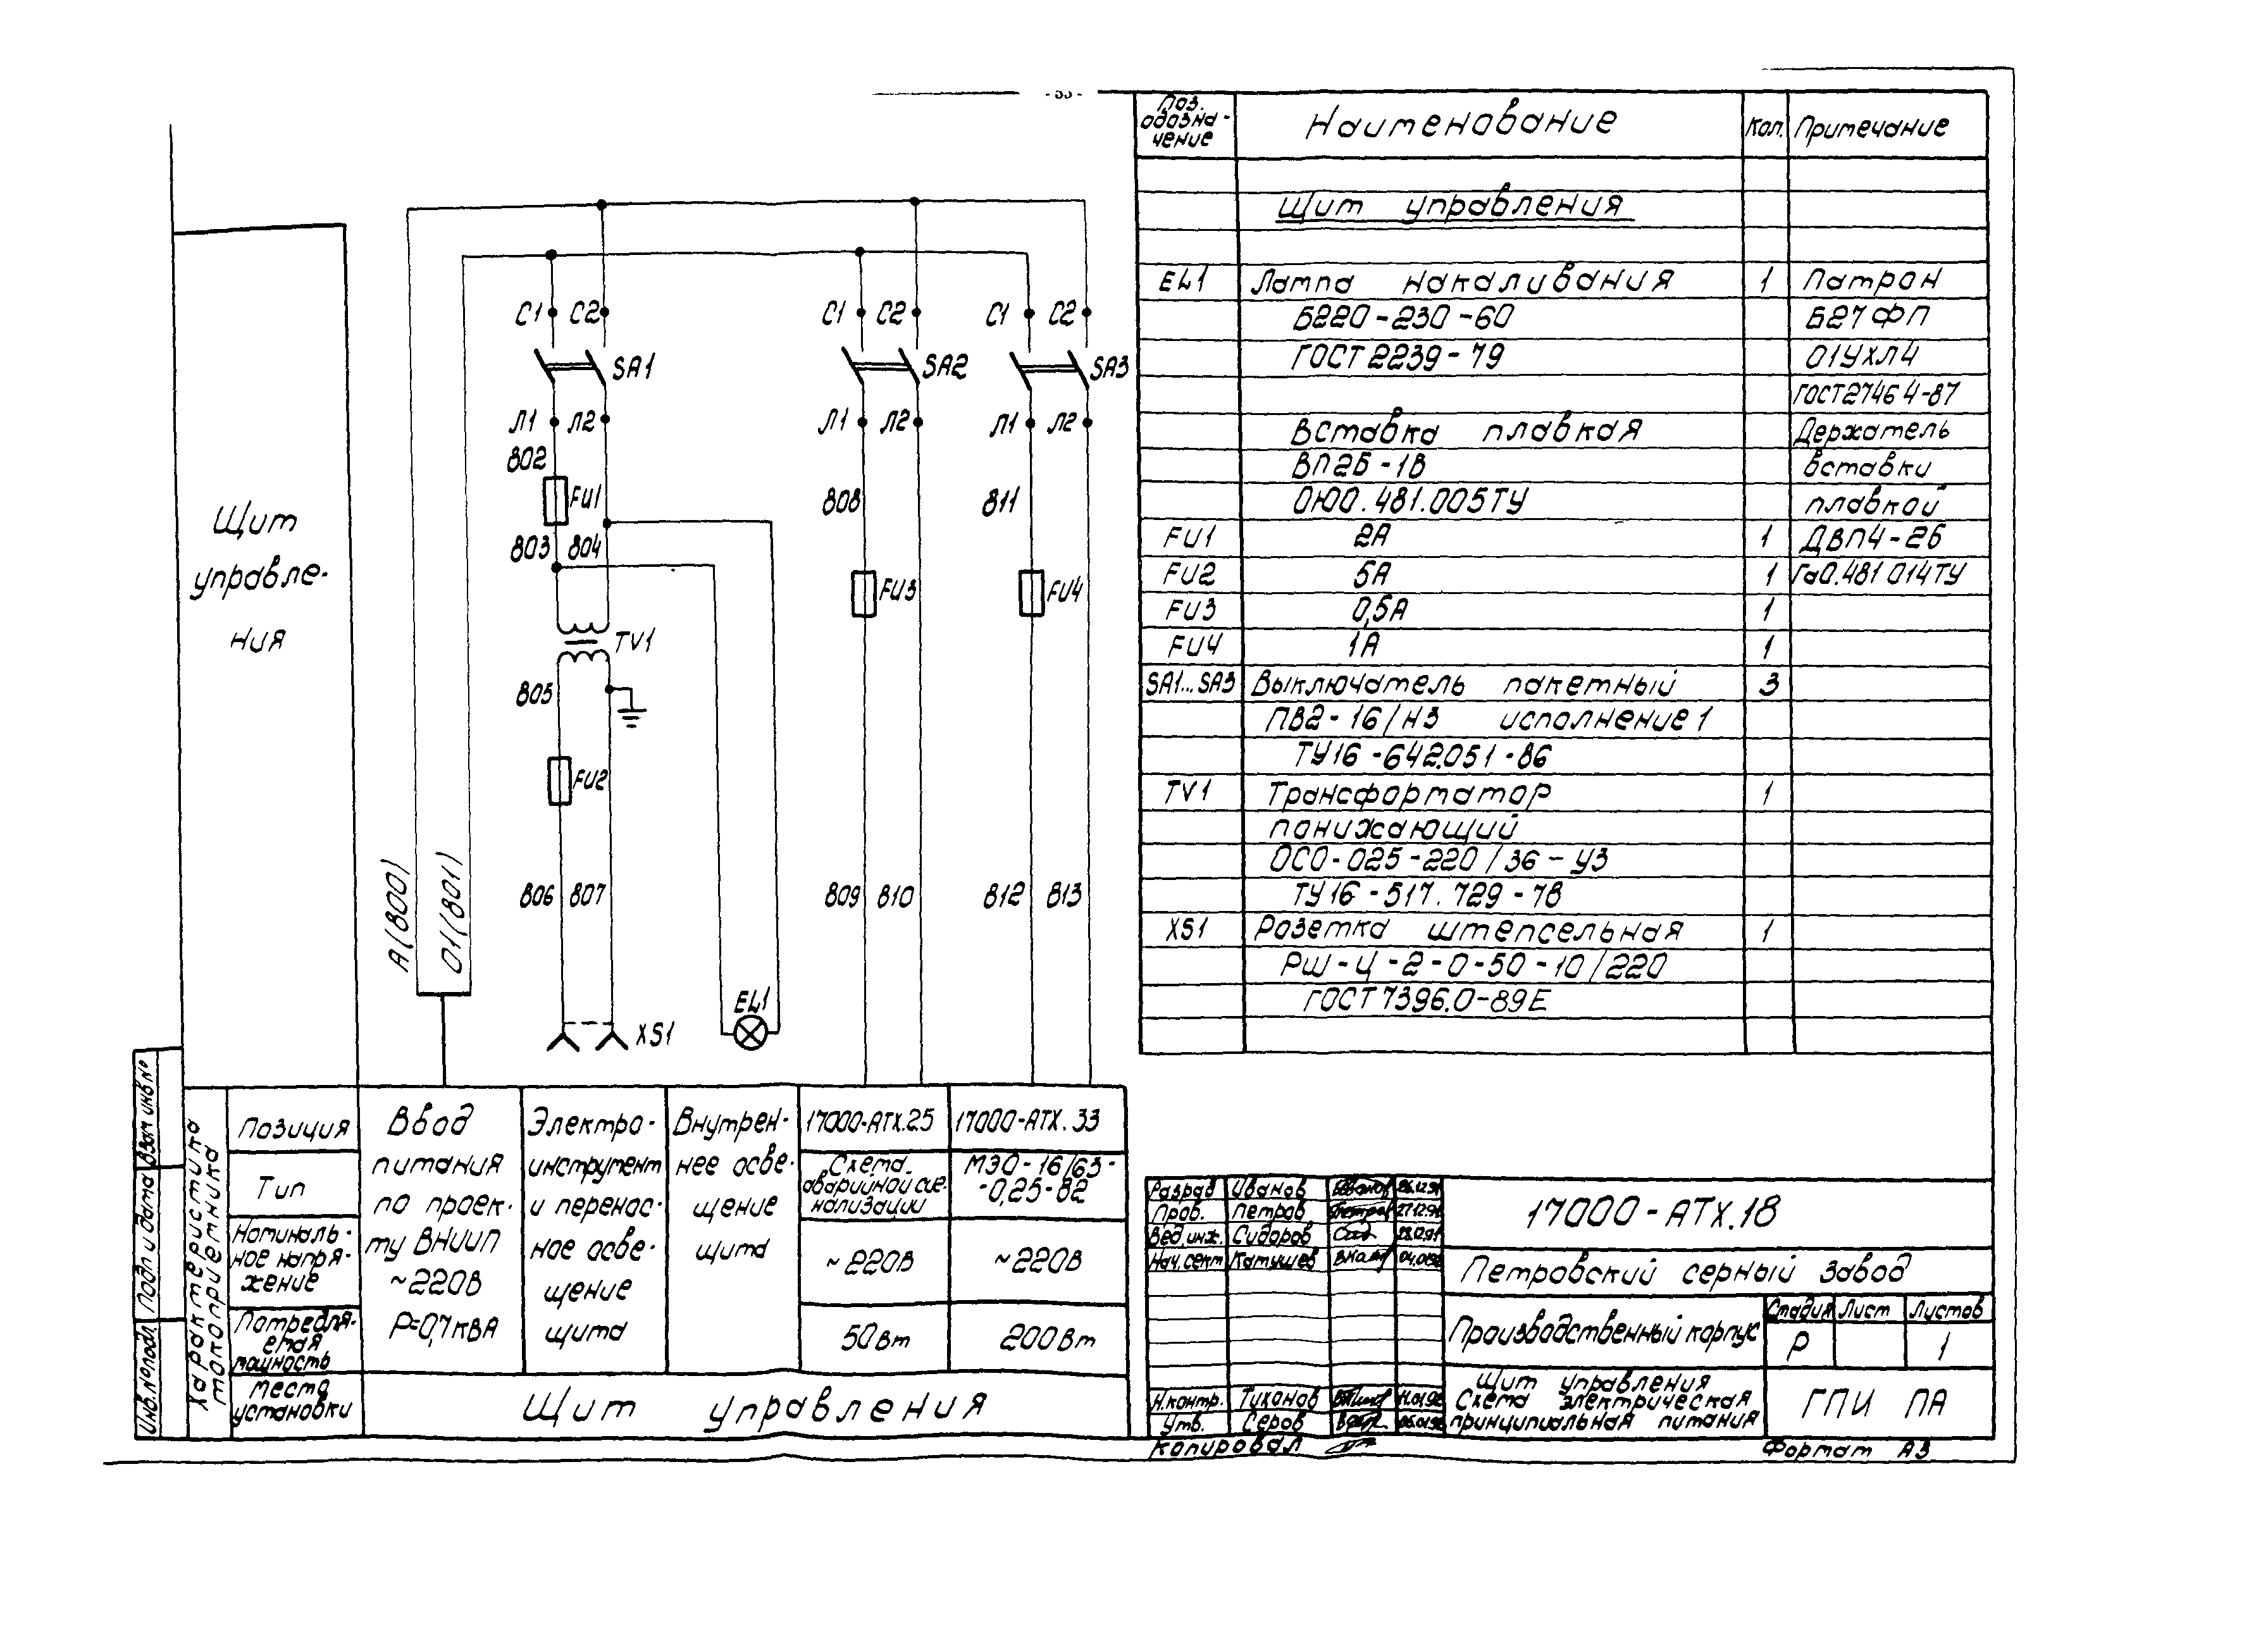 Щит
управле-
ния
С1 С2
С1 С2
С1 С2
SA1
SA2
SA3
Л1 Л2
Л1 Л2
Л1 Л2
802
FU1
808
811
803 804
FU3
FU4
TV1
805
FU2
А(800)
01(801)
806 807
809 810
812 813
EL1
XS1
Поз.
обозна-
чение
Наименование
Кол.
Примечание
Щит управления
EL1 Лампа накаливания 1 Патрон
Б220-230-60 Б27ФП
ГОСТ 2239-79 01УХЛ4
ГОСТ 2746 4-87
Вставка плавкая Держатель
ВП2Б-1В вставки
ОЮО.481.005ТУ плавкой
FU1 2А 1 ДВП4-2б
FU2 5А 1 Га0.481 014ТУ
FU3 0,5А 1
FU4 1А 1
SA1...SA3 Выключатель пакетный 3
ПВ2-16/Н3 исполнение 1
ТУ16-642.051-86
TV1 Трансформатор 1
понижающий
ОСО-025-220/36-У3
ТУ16-517.729-78
XS1 Розетка штепсельная 1
РШ-Ц-2-0-50-10/220
ГОСТ 7396.0-89Е
Характеристика
токоприемника
Позиция
Тип
Номиналь-
ное напря-
жение
Потребля-
емая
мощность
Место
установки
Ввод
питания
по проек-
ту ВНИИП
~220В
Р=0,7кВА
Электро-
инструмент
и перенос-
ное осве-
щение
щита
Внутрен-
нее осве-
щение
щита
17000-АТХ.25
Схема
аварийной сиг-
нализации
~220В
50Вт
17000-АТХ.33
МЭО-16/63-
-0,25-82
~220В
200Вт
Щит управления
Взам инв №
Подп и дата
Инв.№ подл.
Разраб Иванов 26.12.91
Пров. Петров 27.12.91
Вед.инж. Сидоров 28.12.91
Нач.сект Катушев
Н.контр. Тихонов
Утв. Серов
17000-АТХ.18
Петровский серный завод
Производственный корпус
Стадия Лист Листов
Р 1
Щит управления
Схема электрическая
принципиальная питания
ГПИ ПА
Копировал
Формат А3